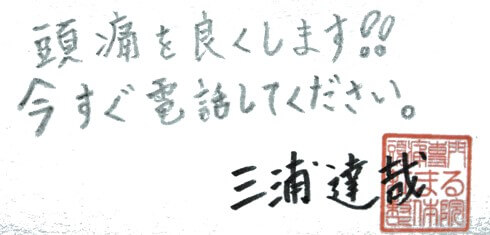 頭痛を良くします!!
今すぐ電話してください。
三浦達哉